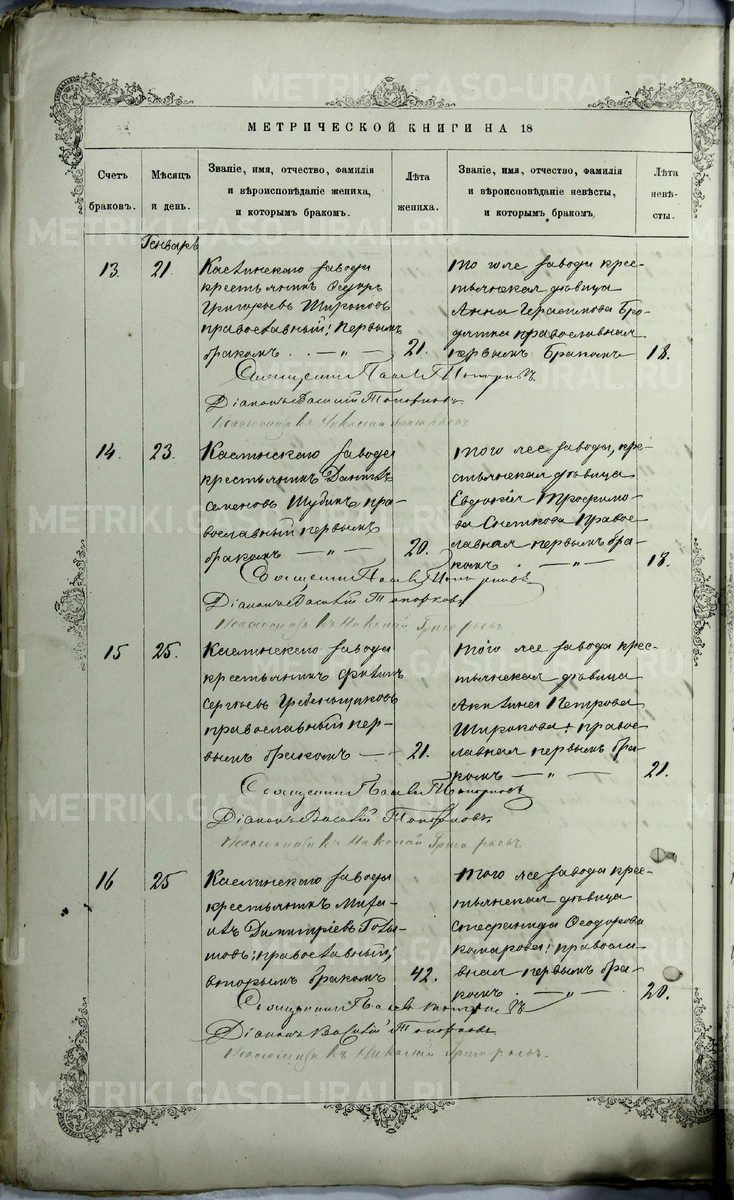 METRIKI.GASO-URAL.RU
МЕТРИЧЕСКОЙ КНИГИ НА 18
Счетъ браковъ.
Мѣсяцъ и день.
Званіе, имя, отчество, фамилія
и вѣроисповѣданіе жениха,
и которымъ бракомъ.
Лѣта жениха.
Званіе, имя, отчество, фамилія
и вѣроисповѣданіе невѣсты,
и которымъ бракомъ.
Лѣта невѣсты.
Генварь
13.
21.
Каслинскаго завода
крестьянинъ Ѳедоръ
Григорьевъ Широковъ
православный; первымъ
бракомъ . . — „ —
21.
того же завода кре-
стьянская дѣвица
Анна Герасимова
православная
первымъ бракомъ
18.
Священникъ Павелъ
Діаконъ Василій Топорковъ
Псаломщикъ Николай Григорьевъ
14.
23.
Каслинскаго завода
крестьянинъ Даніилъ
Семеновъ Шубинъ пра-
вославный первымъ
бракомъ — „ —
20.
того же завода, кре-
стьянская дѣвица
Евдокія Трофимо-
ва Снеткова право-
славная первымъ бра-
комъ . — „ —
18.
Священникъ Павелъ
Діаконъ Василій Топорковъ
Псаломщикъ Николай Григорьевъ
15
25.
Каслинскаго завода
крестьянинъ Филипъ
Сергѣевъ Гребеньщиковъ
православный пер-
вымъ бракомъ — —
21.
того же завода крес-
тьянская дѣвица
Акилина Петрова
Широкова; право-
славная первымъ бра-
комъ — „ —
21.
Священникъ Павелъ
Діаконъ Василій Топорковъ
Псаломщикъ Николай Григорьевъ
16
25
Каслинскаго завода
крестьянинъ Миха-
илъ Димитріевъ
православный;
вторымъ бракомъ
42.
того же завода крес-
тьянская дѣвица
Стефанида Ѳеодорова
Комарова; правосла-
вная первымъ бра-
комъ . — „ —
20.
Священникъ Павелъ
Діаконъ Василій Топорковъ
Псаломщикъ Николай Григорьевъ.